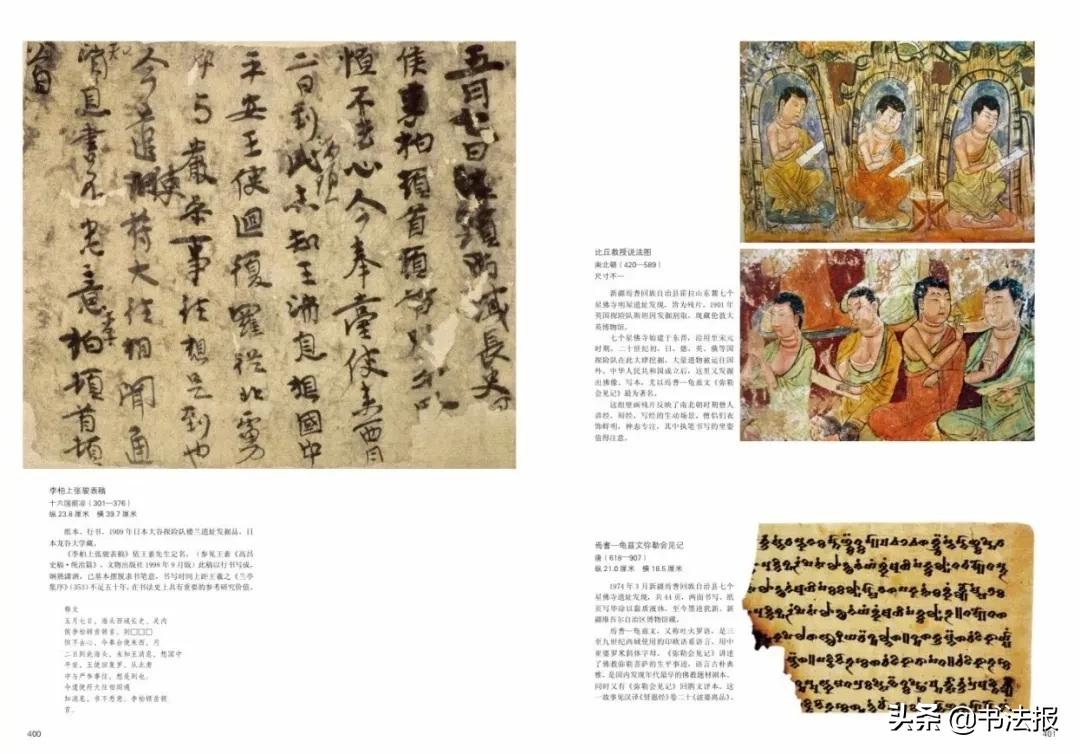 五月七日海頭西域長史関内
侯李柏頓首頓首
恒不去心今奉臺使来西月
二日到此海頭未知王消息想國中
平安王使迴復羅従北虜
中与嚴参事往想是到也
今遣使苻大往相聞通
知消息書不悉意李柏頓首頓
首
李柏上张骏表稿
十六国前凉（301—376）
纵 23.8 厘米 横 39.7 厘米
纸本，行书，1909 年日本大谷探险队楼兰遗址发掘品，日
本龙谷大学藏。
《李柏上张骏表稿》依王素先生定名，（参见王素《高昌
史稿·统治篇》，文物出版社 1998 年 9 月版）此稿以行书写成，
娴熟潇洒，已基本摆脱隶书笔意，书写时间上距王羲之《兰亭
集序》（353）不足五十年，在书法史上具有重要的参考研究价值。
释文
五月七日，海头西域长史、关内
侯李柏顿首顿首，别□□□
恒不去心，今奉台使来西，月
二日到此海头，未知王消息，想国中
平安，王使回复罗，从北虏
中与严参事往，想是到也。
今遣使符大往相闻通
知消息，书不悉意。李柏顿首顿
首。
400
比丘教授说法图
南北朝（420—589）
尺寸不一
新疆焉耆回族自治县霍拉山东麓七个
星佛寺明屋遗址发现，皆为残片。1901 年
英国探险队斯坦因发掘割取，现藏伦敦大
英博物馆。
七个星佛寺始建于东晋，沿用至宋元
时期。二十世纪初，日、德、英、俄等国
探险队在此大肆挖掘，大量遗物被运往国
外。中华人民共和国成立后，这里又发掘
出佛像、写本，尤以焉耆—龟兹文《弥勒
会见记》最为著名。
这组壁画残片反映了南北朝时期僧人
讲经、辩经、写经的生动场景，僧侣们衣
饰鲜明，神态专注，其中执笔书写的坐姿
值得注意。
焉耆—龟兹文弥勒会见记
唐（618—907）
纵 21.0 厘米 横 18.5 厘米
1974 年 3 月新疆焉耆回族自治县七个
星佛寺遗址发现，共 44 页，两面书写，纸
页写毕涂以黏质液体，至今墨迹犹新。新
疆维吾尔自治区博物馆藏。
焉耆—龟兹文，又称吐火罗语，是三
至九世纪西域使用的印欧语系语言，用中
亚婆罗米斜体字母。《弥勒会见记》讲述
了佛教弥勒菩萨的生平事迹，语言古朴典
雅，是国内发现年代最早的佛教题材剧本。
同时又有《弥勒会见记》回鹘文译本。这
一故事见汉译《贤愚经》卷二十《波婆离品》。
头条 @书法报
401